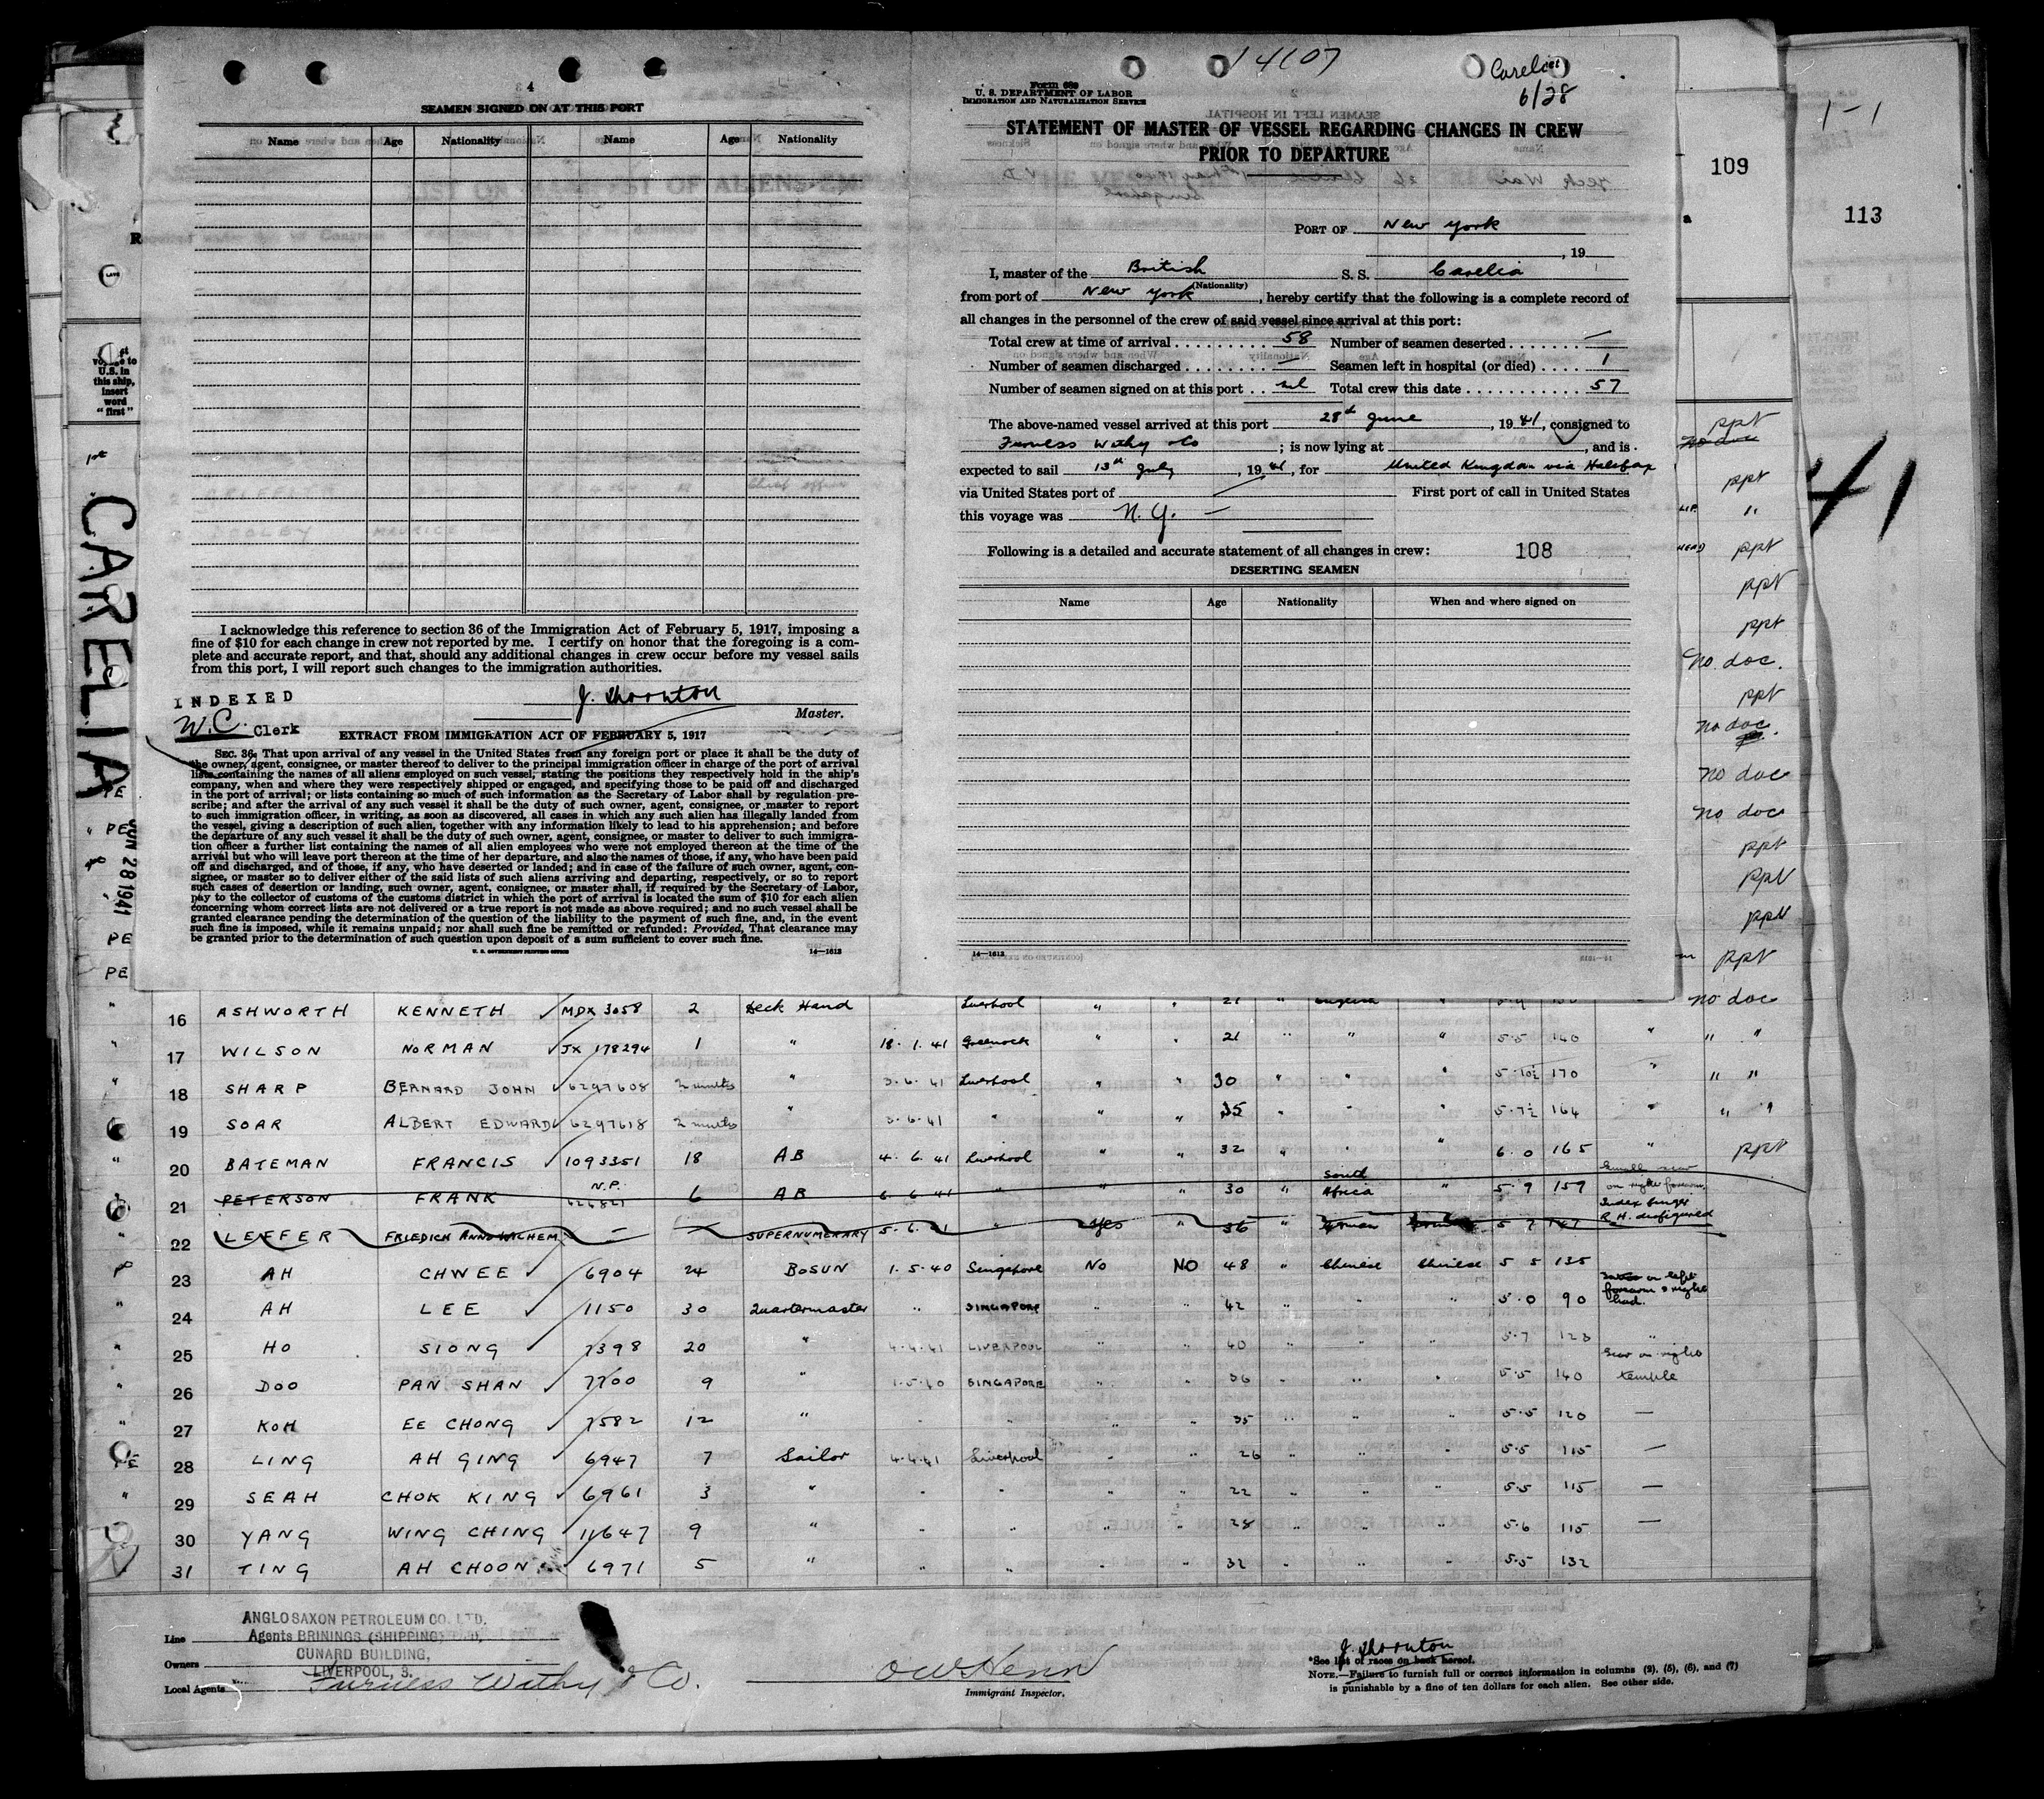 4
SEAMEN SIGNED ON AT THIS PORT
Name Age Nationality Name Age Nationality
I acknowledge this reference to section 36 of the Immigration Act of February 5, 1917, imposing a
fine of $10 for each change in crew not reported by me. I certify on honor that the foregoing is a com-
plete and accurate report, and that, should any additional changes in crew occur before my vessel sails
from this port, I will report such changes to the immigration authorities.
INDEXED
W.C. Clerk
J. Thornton
Master.
EXTRACT FROM IMMIGRATION ACT OF FEBRUARY 5, 1917
SEC. 36. That upon arrival of any vessel in the United States from any foreign port or place it shall be the duty of
the owner, agent, consignee, or master thereof to deliver to the principal immigration officer in charge of the port of arrival
lists containing the names of all aliens employed on such vessel, stating the positions they respectively hold in the ship's
company, when and where they were respectively shipped or engaged, and specifying those to be paid off and discharged
in the port of arrival; or lists containing so much of such information as the Secretary of Labor shall by regulation pre-
scribe; and after the arrival of any such vessel it shall be the duty of such owner, agent, consignee, or master to report
to such immigration officer, in writing, as soon as discovered, all cases in which any such alien has illegally landed from
the vessel, giving a description of such alien, together with any information likely to lead to his apprehension; and before
the departure of any such vessel it shall be the duty of such owner, agent, consignee, or master to deliver to such immigra-
tion officer a further list containing the names of all alien employees who were not employed thereon at the time of the
arrival but who will leave port thereon at the time of her departure, and also the names of those, if any, who have been paid
off and discharged, and of those, if any, who have deserted or landed; and in case of the failure of such owner, agent, con-
signee, or master so to deliver either of the said lists of such aliens arriving and departing, respectively, or so to report
such cases of desertion or landing, such owner, agent, consignee, or master shall, if required by the Secretary of Labor,
pay to the collector of customs of the customs district in which the port of arrival is located the sum of $10 for each alien
concerning whom correct lists are not delivered or a true report is not made as above required; and no such vessel shall be
granted clearance pending the determination of the question of the liability to the payment of such fine, and, in the event
such fine is imposed, while it remains unpaid; nor shall such fine be remitted or refunded: Provided, That clearance may
be granted prior to the determination of such question upon deposit of a sum sufficient to cover such fine.
U. S. GOVERNMENT PRINTING OFFICE 14—1613
14107
Carelia
6/28
U. S. DEPARTMENT OF LABOR
IMMIGRATION AND NATURALIZATION SERVICE
STATEMENT OF MASTER OF VESSEL REGARDING CHANGES IN CREW
PRIOR TO DEPARTURE
PORT OF New York
, 19
I, master of the British S. S. Carelia
(Nationality)
from port of New York, hereby certify that the following is a complete record of
all changes in the personnel of the crew of said vessel since arrival at this port:
Total crew at time of arrival 58 Number of seamen deserted —
Number of seamen discharged — Seamen left in hospital (or died) 1
Number of seamen signed on at this port nil Total crew this date 57
The above-named vessel arrived at this port 28th June, 1941, consigned to
Furness Withy & Co; is now lying at , and is
expected to sail 13th July, 1941, for United Kingdom via Halifax
via United States port of — First port of call in United States
this voyage was N.Y. —
Following is a detailed and accurate statement of all changes in crew: 108
DESERTING SEAMEN
Name Age Nationality When and where signed on
14—1613
1-1
109
113
41
1st
CARELIA
JUN 28 1941
voyage to
U.S. in
this ship,
insert
word
"first"
ppt
no doc
ppt
"
ppt
ppt
ppt
no doc.
ppt
no doc.
no doc
no doc
ppt
ppt
ppt
ppt
16 ASHWORTH KENNETH MDX 3058 2 Deck Hand Liverpool " " 21 " English " no doc
17 WILSON NORMAN JX 178294 1 " 18.1.41 Greenock " " 21 " " 5.5 140 " " "
18 SHARP BERNARD JOHN 6297608 2 months " 3.6.41 Liverpool " " 30 " " " 5.10½ 170 " " "
19 SOAR ALBERT EDWARD 6297618 2 months " 3.6.41 " " " 35 " " " 5.7½ 164 " " "
20 BATEMAN FRANCIS 1093351 18 AB 4.6.41 Liverpool " " 32 " " " 6.0 165 " ppt
21 PETERSON FRANK N.P. 626821 6 AB 6.6.41 " " " 30 " South Africa " 5.9 159 Small scar on right forearm.
22 LEFFER SUPERNUMERARY 5.6.41 " Yes " 36 " German German 5 7 147 Index finger R.H. disfigured
23 AH CHWEE 6904 24 BOSUN 1.5.40 Singapore No NO 48 " Chinese Chinese 5 5 135
24 AH LEE 1150 30 Quartermaster " SINGAPORE " " 42 " " " 5.0 90
25 HO SIONG 7398 20 " 4.4.41 LIVERPOOL " " 40 " " " 5.7 123 "
26 DOO PAN SHAN 7700 9 " 1.5.40 SINGAPORE " " 36 " " " 5.5 140 Scar on right temple
27 KOH EE CHONG 7582 12 " " " " 35 " " " 5.5 120 —
28 LING AH GING 6947 7 Sailor 4.4.41 Liverpool " " 26 " " " 5.5 115 —
29 SEAH CHOK KING 6961 3 " " " " " 22 " " " 5.5 115 —
30 YANG WING CHING 11647 9 " " " " " 28 " " " 5.6 115 —
31 TING AH CHOON 6971 5 " " " " " 32 " " " 5.5 132
Line ANGLO SAXON PETROLEUM CO. LTD.
Agents BRININGS (SHIPPING) LTD,
Owners CUNARD BUILDING,
LIVERPOOL, 3.
Local Agents Furness Withy & Co.
Immigrant Inspector.
J. Thornton
*See list of races on back hereof.
NOTE.—Failure to furnish full or correct information in columns (2), (5), (6), and (7)
is punishable by a fine of ten dollars for each alien. See other side.